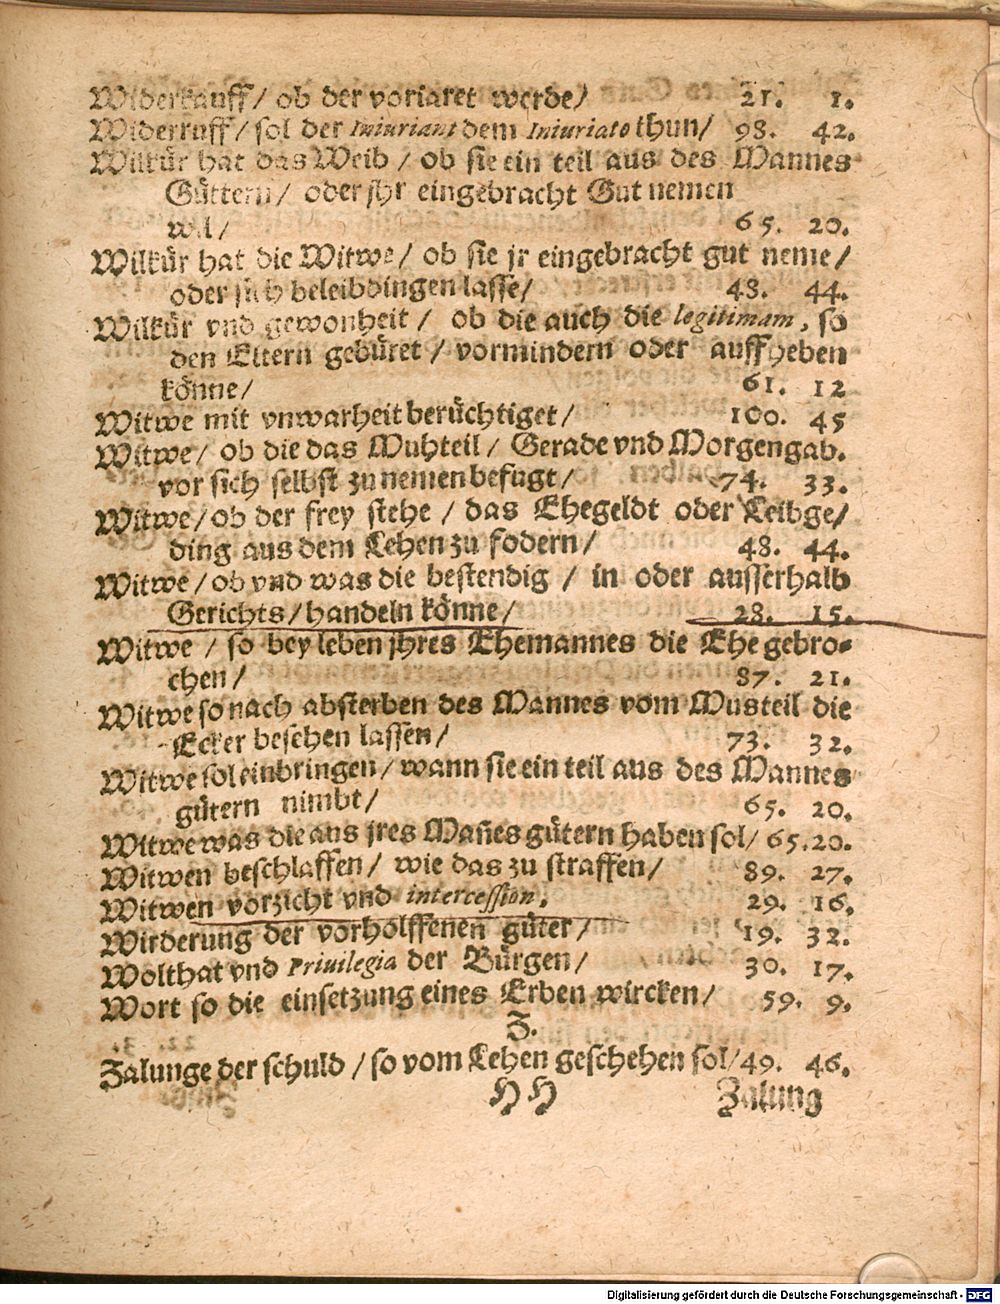 Widerkauff/ ob der voriaret werde/ 21. 1.
Widerruff/ sol der Iniuriant dem Iniuriato thun/ 98. 42.
Wilkür hat das Weib / ob sie ein teil aus des Mannes
Güttern/ oder jhr eingebracht Gut nemen
wil/ 65. 20.
Wilkür hat die Witwe/ ob sie jr eingebracht gut neme/
oder sich beleibdingen lasse/ 48. 44.
Wilkür vnd gewonheit / ob die auch die legitimam, so
den Eltern gebüret / vormindern oder auffheben
könne/ 61. 12
Witwe mit vnwarheit berüchtiget/ 100. 45
Witwe/ ob die das Muhteil/ Gerade vnd Morgengab.
vor sich selbst zu nemen befugt/ 74. 33.
Witwe/ ob der frey stehe / das Ehegeldt oder Leibge/
ding aus dem Lehen zu fodern/ 48. 44.
Witwe/ ob vnd was die bestendig / in oder ausserhalb
Gerichts/ handeln könne/ 28. 15.
Witwe / so bey leben jhres Ehemannes die Ehe gebro-
chen/ 87. 21.
Witwe so nach absterben des Mannes vom Musteil die
Ecker beschen lassen/ 73. 32.
Witwe sol einbringen/ wann sie ein teil aus des Mannes
gütern nimbt/ 65. 20.
Witwe was die aus jres Mañes gütern haben sol/ 65. 20.
Witwen beschlaffen/ wie das zu straffen/ 89. 27.
Witwen vorzicht vnd intercession. 29. 16.
Wirderung der vorholffenen güter/ 19. 32.
Wolthat vnd Priuilegia der Bürgen/ 30. 17.
Wort so die einsetzung eines Erben wircken/ 59. 9.
Z.
Zalunge der schuld / so vom Lehen geschehen sol/ 49. 46.
HH Zalung
Digitalisierung gefördert durch die Deutsche Forschungsgemeinschaft - DFG